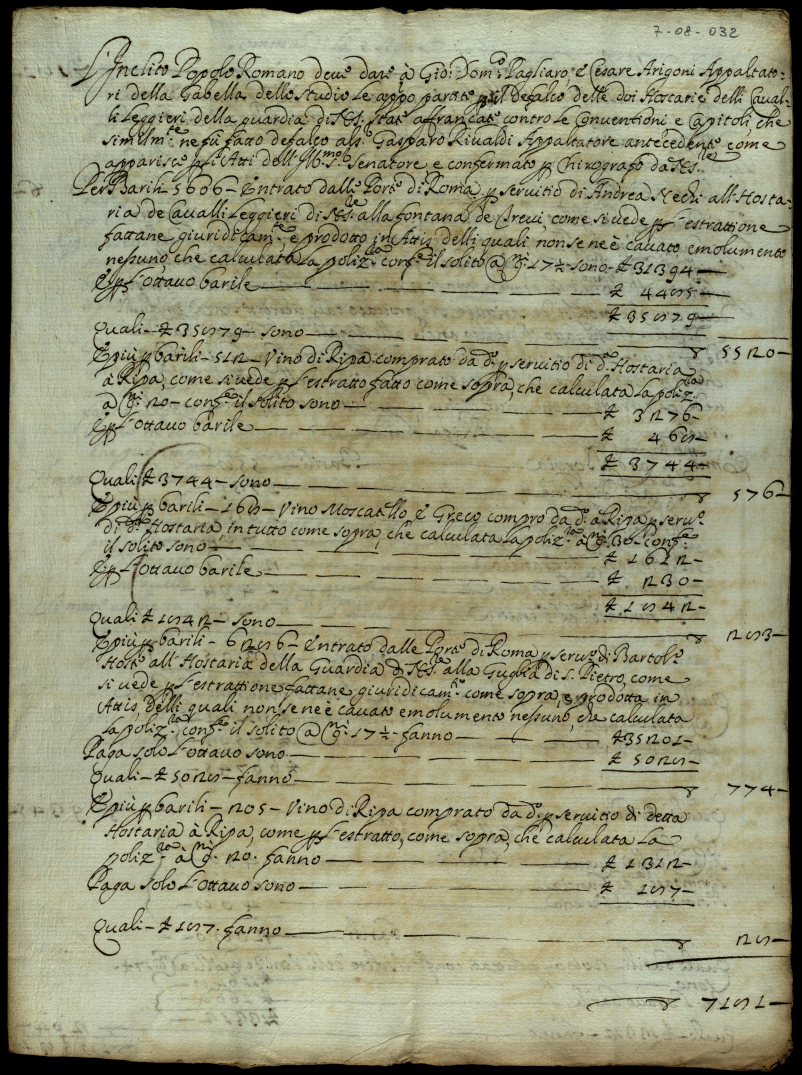 7-08-032
L'Inclito Popolo Romano deve dare à Gio: Dom.co Pagliaro, e Cesare Arigoni Appaltato:
ri della Gabella dello Studio le appo partite p il defalco delle doi Hostarie delli Caval:
li Leggieri della guardia di N.S. state affrancate contro le Conventioni e Capitoli, che
similm.te ne fù fatto defalco al s.r Gasparo Rivaldi Appaltatore antecedente come
apparisce p l'Atti dell'Ill.mo S.r Senatore e confermato p Chirografo da N.S.re
Per Barili - 5606 - Entrato dalle Porte di Roma p servitio di Andrea Nechi all'Hosta:
ria de Cavalli Leggieri di N.S.re alla fontana de Trevi, come si vede p l'estrattione
fattane giuridicam.te e prodotto in Attis delli quali non se ne è cavato emolumento
nessuno che calculata la poliz.tta conf.e il solito @ q.ni 17½ sono - 31394 —
E p l'ottavo barile — 4485 —
35879 —
Quali - 35879 - sono — 5520 —
E più p barili - 512 - Vino di Ripa comprato da d.o p servitio di d.a Hostaria
à Ripa, come si vede p l'estratto fatto come sopra, che calculata la poliz.tta
a q.ni 20 - conf.e il solito sono — 3276 —
E p l'ottavo barile — 468 —
3744 —
Quali 3744 - sono — 576 —
E più p barili - 168 - Vino Moscatello, e Greco compro da d.o à Ripa p serv.o
di d.a Hostaria, in tutto come sopra, che calculata la poliz.tta à q.ni 30 - conf.e
il solito sono — 1612 —
E p l'ottavo barile — 230 —
1842 —
Quali 1842 - sono — 283 —
E più p barili - 6286 - Entrato dalle Porte di Roma p serv.o di Bartol.o
Hoste all'Hostaria della Guardia di N.S.re alla Guglia di S. Pietro, come
si vede p l'estrattione fattane giuridicam.te come sopra, e prodotta in
Attis, delli quali non se ne è cavato emolumento nessuno, che calculata
la poliz.tta conf.e il solito @ q.ni 17½ - fanno — 35201 —
Paga solo l'ottavo sono — 5028 —
Quali - 5028 - fanno — 774 —
E più p barili - 205 - Vino di Ripa comprato da d.o p servitio di detta
Hostaria à Ripa, come p l'estratto, come sopra, che calculata la
poliz.tta à q.ni 20. fanno — 1312 —
Paga solo l'ottavo sono — 187 —
Quali - 187. fanno — 28 —
7181 —